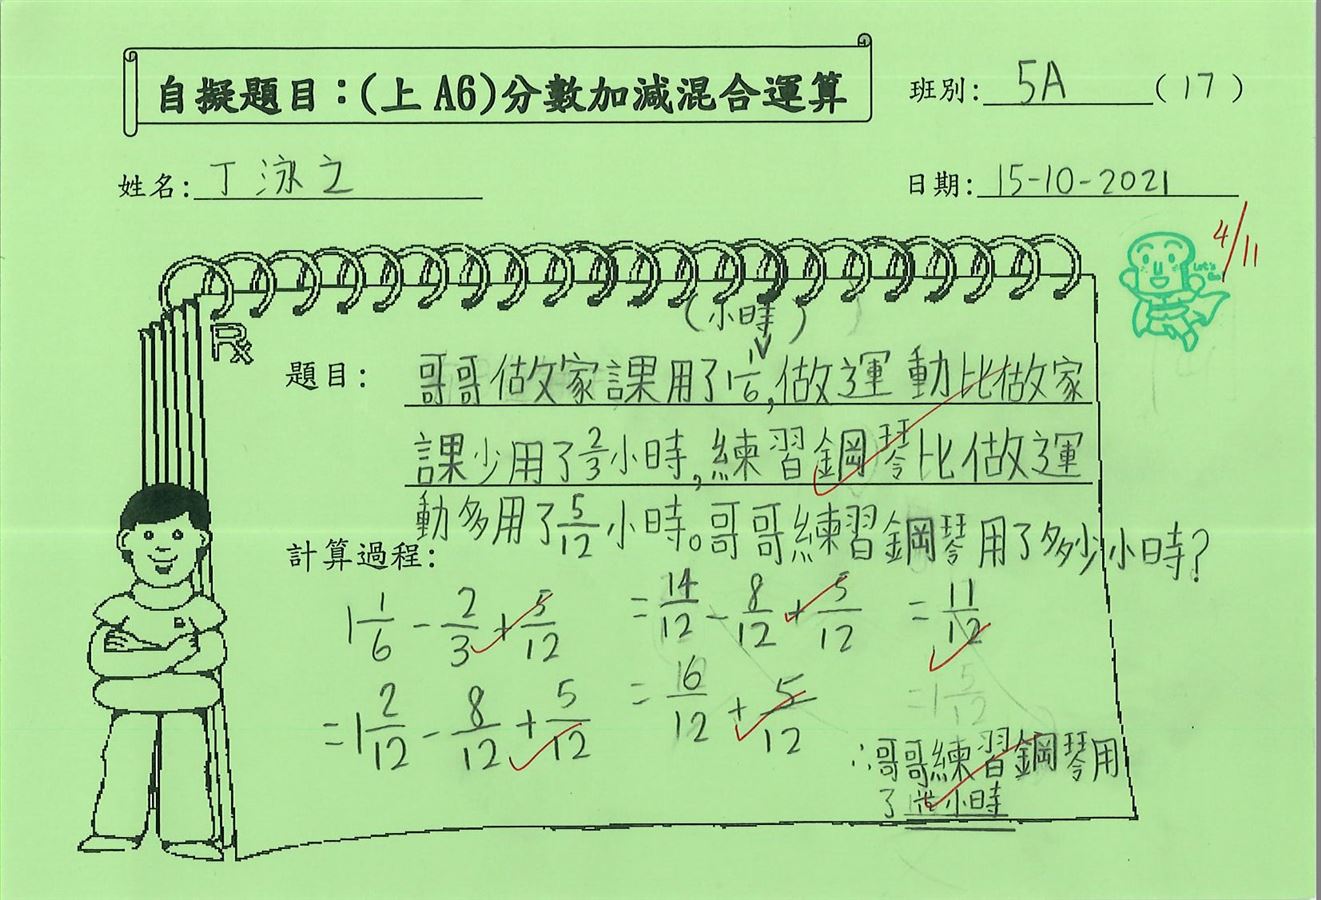 自擬題目：(上 A6)分數加減混合運算
班別: 5A (17)
姓名: 丁泳之
日期: 15-10-2021
4/11
Let's Go
(小時)
題目: 哥哥做家課用了1 1/6,做運動比做家
課少用了2/3小時,練習鋼琴比做運
動多用了5/12小時。哥哥練習鋼琴用了多少小時?
計算過程:
1 1/6 - 2/3 + 5/12
= 1 2/12 - 8/12 + 5/12
= 14/12 - 8/12 + 5/12
= 16/12 + 5/12
= 11/12
= 1 5/12
∴哥哥練習鋼琴用
了 小時